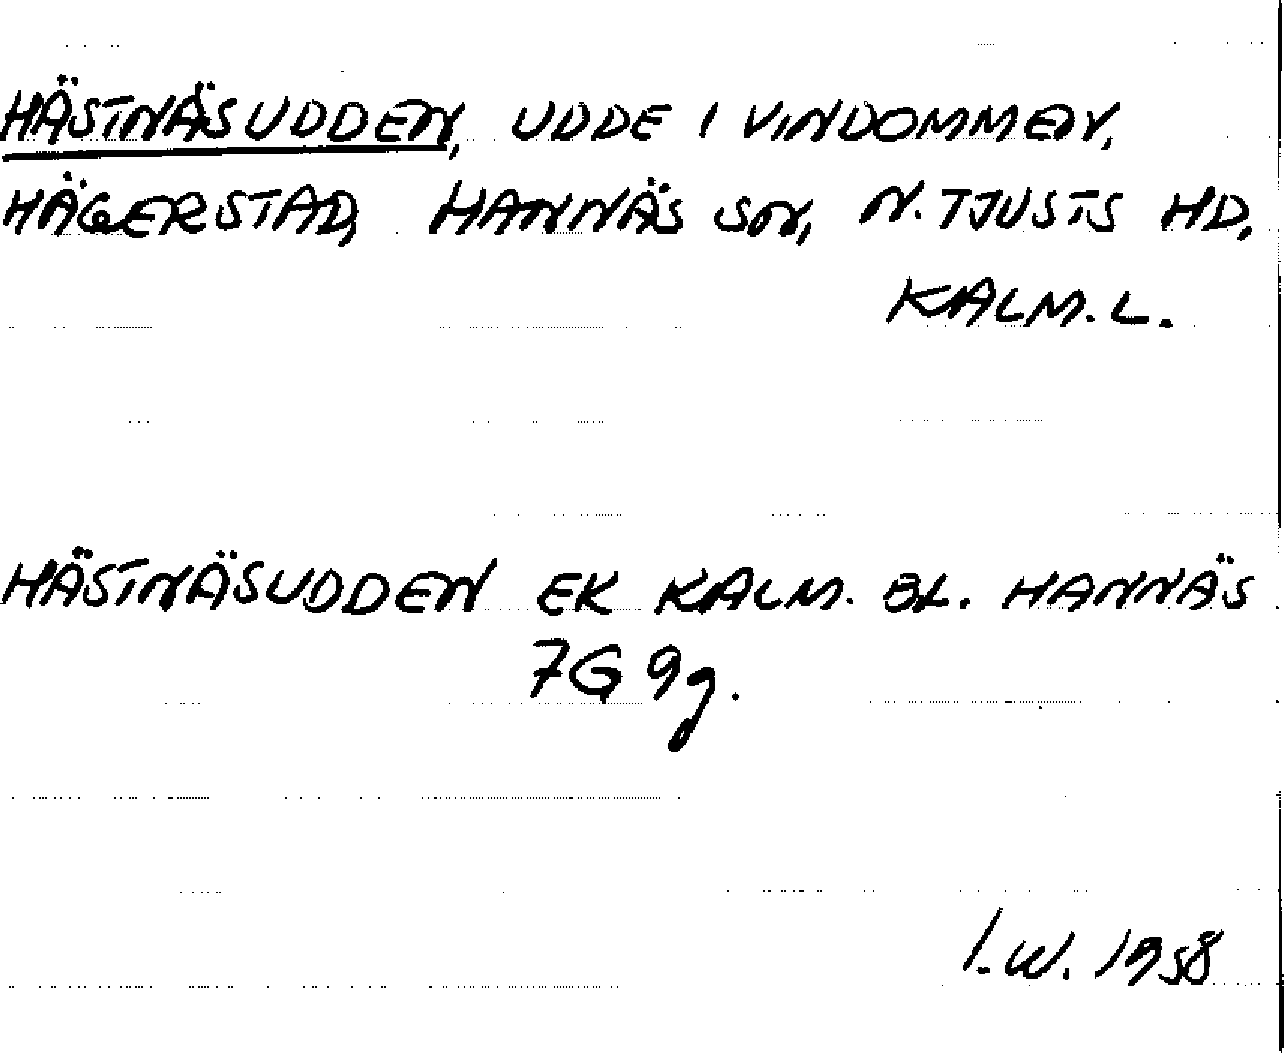 HÄSTNÄSUDDEN, UDDE I VINDOMMEN,
HÄGERSTAD, HANNÄS SN, N. TJUSTS HD,
KALM. L.
HÄSTNÄSUDDEN EK KALM. BL. HANNÄS
7G 9g.
I.W. 1958